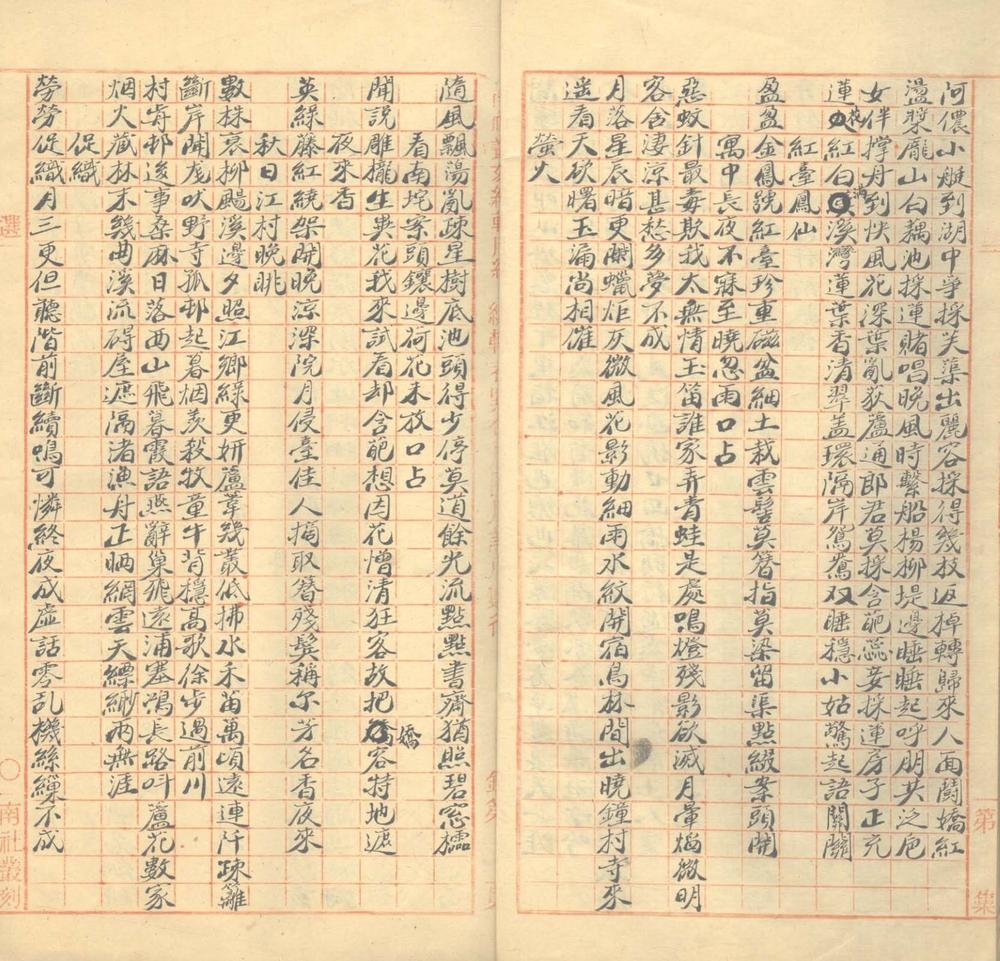 阿儂小艇到湖中爭採芙蕖出麗容採得幾枝返棹轉歸來人面鬪嬌紅
盪槳龐山白藕池採蓮賭唱晚風時繫船楊柳堤邊睡睡起呼朋共泛卮
女伴撑舟到快風花深葉亂荻蘆通郎君莫採含葩蕊妾採蓮房子正充
蓮衣紅白滿溪灣蓮葉香清翠盖環隔岸鴛鴦双睡穩小姑驚起語關關
紅臺鳳仙
盈盈金鳳號紅臺珍重磁盆細土栽雲髻莫簪指莫染留渠點綴案頭開
寓中長夜不寐至曉忽雨口占
惡蚊針最毒欺我太無情玉笛誰家弄青蛙是處鳴燈殘影欲滅月暈熖微明
客舍凄涼甚愁多夢不成
月落星辰暗更闌蠟炬灰微風花影動細雨水紋開宿鳥林間出曉鐘村寺來
遥看天欲曙玉漏尚相催
螢火
隨風飄蕩亂疎星樹底池頭得少停莫道餘光流點點書齋猶照碧窓櫺
看南垞案頭鑲邊荷花未放口占
聞說雕攏生異花我來試看却含葩想因花憎清狂客故把嬌容特地遮
夜來香
英綠藤紅繞架開晚涼深院月侵臺佳人摘取簪殘鬓稱尔芳名香夜來
秋日江村晚眺
數株衰柳颺溪邊夕照江鄉綠更妍蘆葦幾叢低拂水禾苗萬頃遠連阡疎籬
斷岸開尨吠野寺孤邨起暮烟羨殺牧童牛背穩高歌徐步過前川
村歬邨後事桑麻日落西山飛暮霞語燕辭巢飛遠浦塞鴻長路呌蘆花數家
烟火藏林末幾曲溪流碍屋遮隔渚漁舟正晒網雲天縹緲兩無涯
促織
勞勞促織月三更但聽階前斷續鳴可憐終夜成虛話零乱機絲繅不成
第 集
選
○南社叢刻